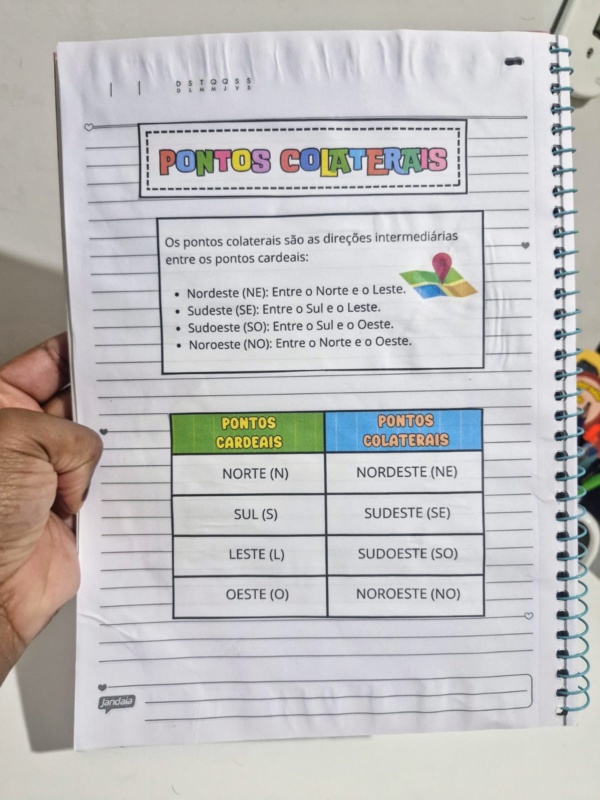 D S T Q Q S S
D L M M J V S
PONTOS COLATERAIS
Os pontos colaterais são as direções intermediárias
entre os pontos cardeais:
• Nordeste (NE): Entre o Norte e o Leste.
• Sudeste (SE): Entre o Sul e o Leste.
• Sudoeste (SO): Entre o Sul e o Oeste.
• Noroeste (NO): Entre o Norte e o Oeste.
PONTOS CARDEAIS
PONTOS COLATERAIS
NORTE (N) NORDESTE (NE)
SUL (S) SUDESTE (SE)
LESTE (L) SUDOESTE (SO)
OESTE (O) NOROESTE (NO)
Jandaia